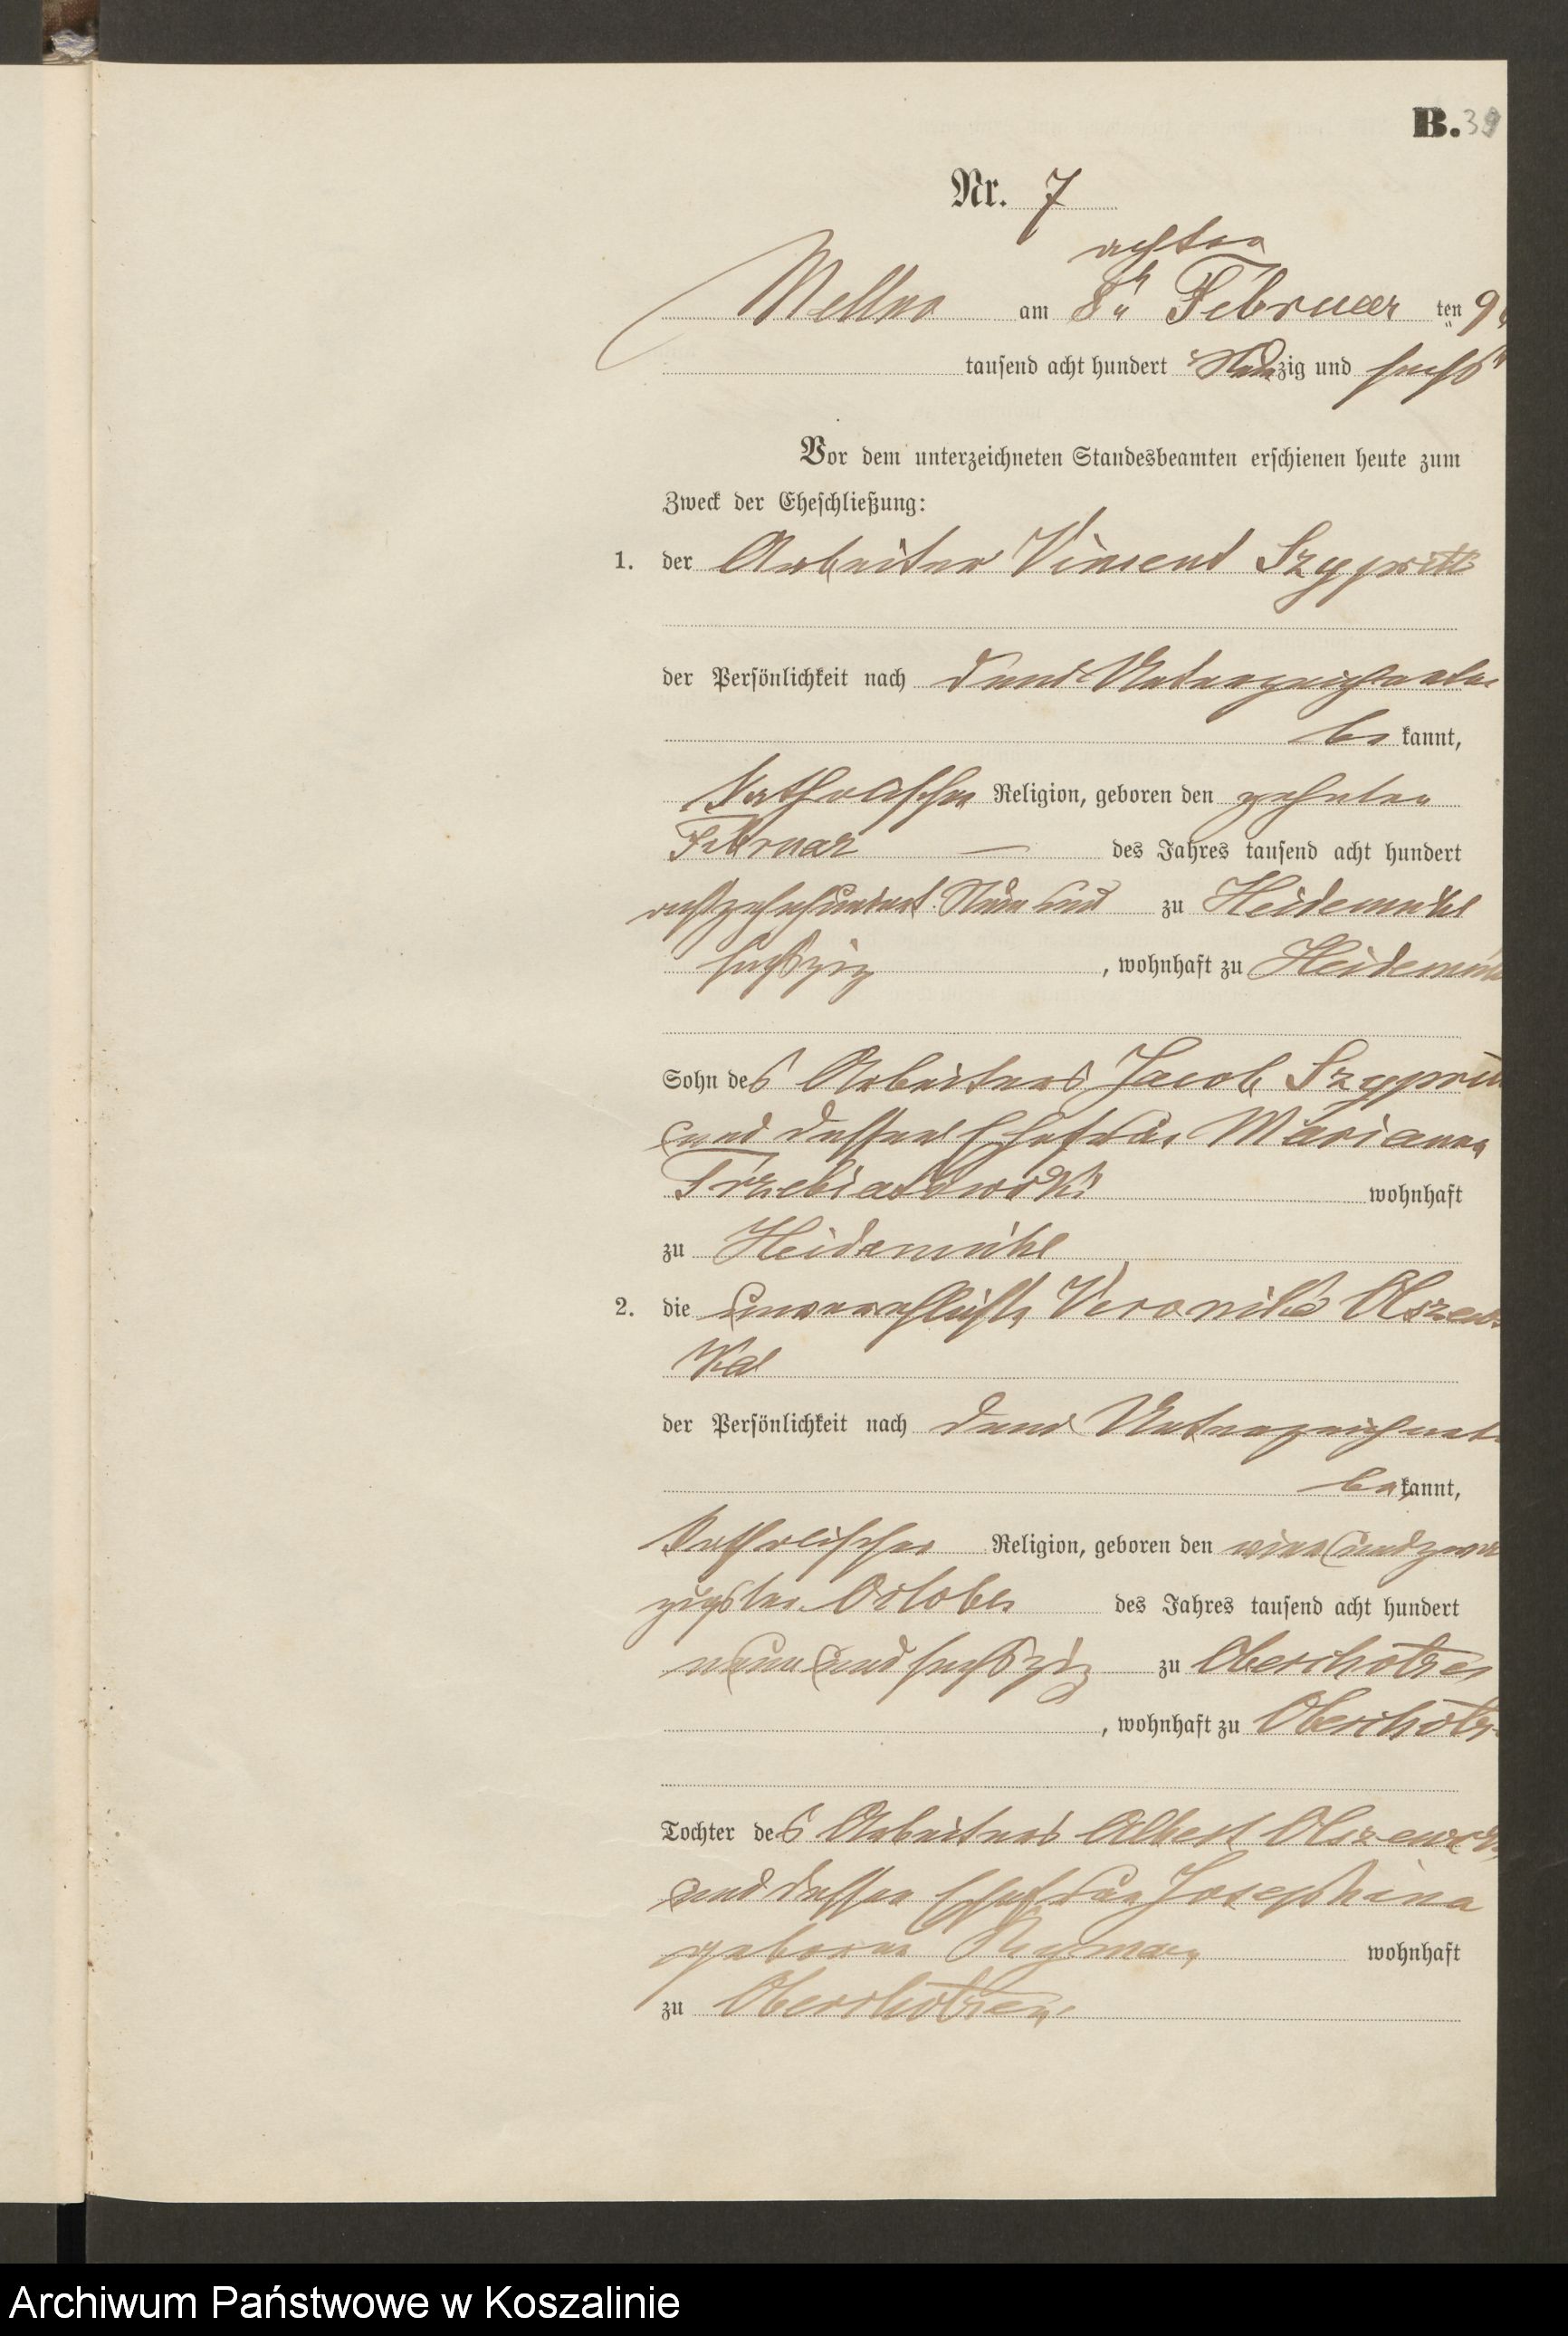 B. 39
Nr. 7
achten
Mellno am 8ten Februar ten 9
tausend acht hundert Neunzig und sechs
Vor dem unterzeichneten Standesbeamten erschienen heute zum
Zweck der Eheschließung:
1. der Arbeiter Vincent
der Persönlichkeit nach
be kannt,
katholischer Religion, geboren den zehnten
Februar — des Jahres tausend acht hundert
achtzehnhundert Neun und zu Heidemühl
sechszig , wohnhaft zu Heidemühl
Sohn des Arbeiters Jacob
und dessen Ehefrau Marianna
Trzebiatowski wohnhaft
zu Heidemühl
2. die unverehelichte Veronika Olszews
ka
der Persönlichkeit nach
be kannt,
katholischer Religion, geboren den vier und zwan
zigsten October des Jahres tausend acht hundert
neun und sechszig zu
, wohnhaft zu
Tochter des Arbeiters Albert Olszewski
und dessen Ehefrau Josephina
geborne wohnhaft
zu
Archiwum Państwowe w Koszalinie